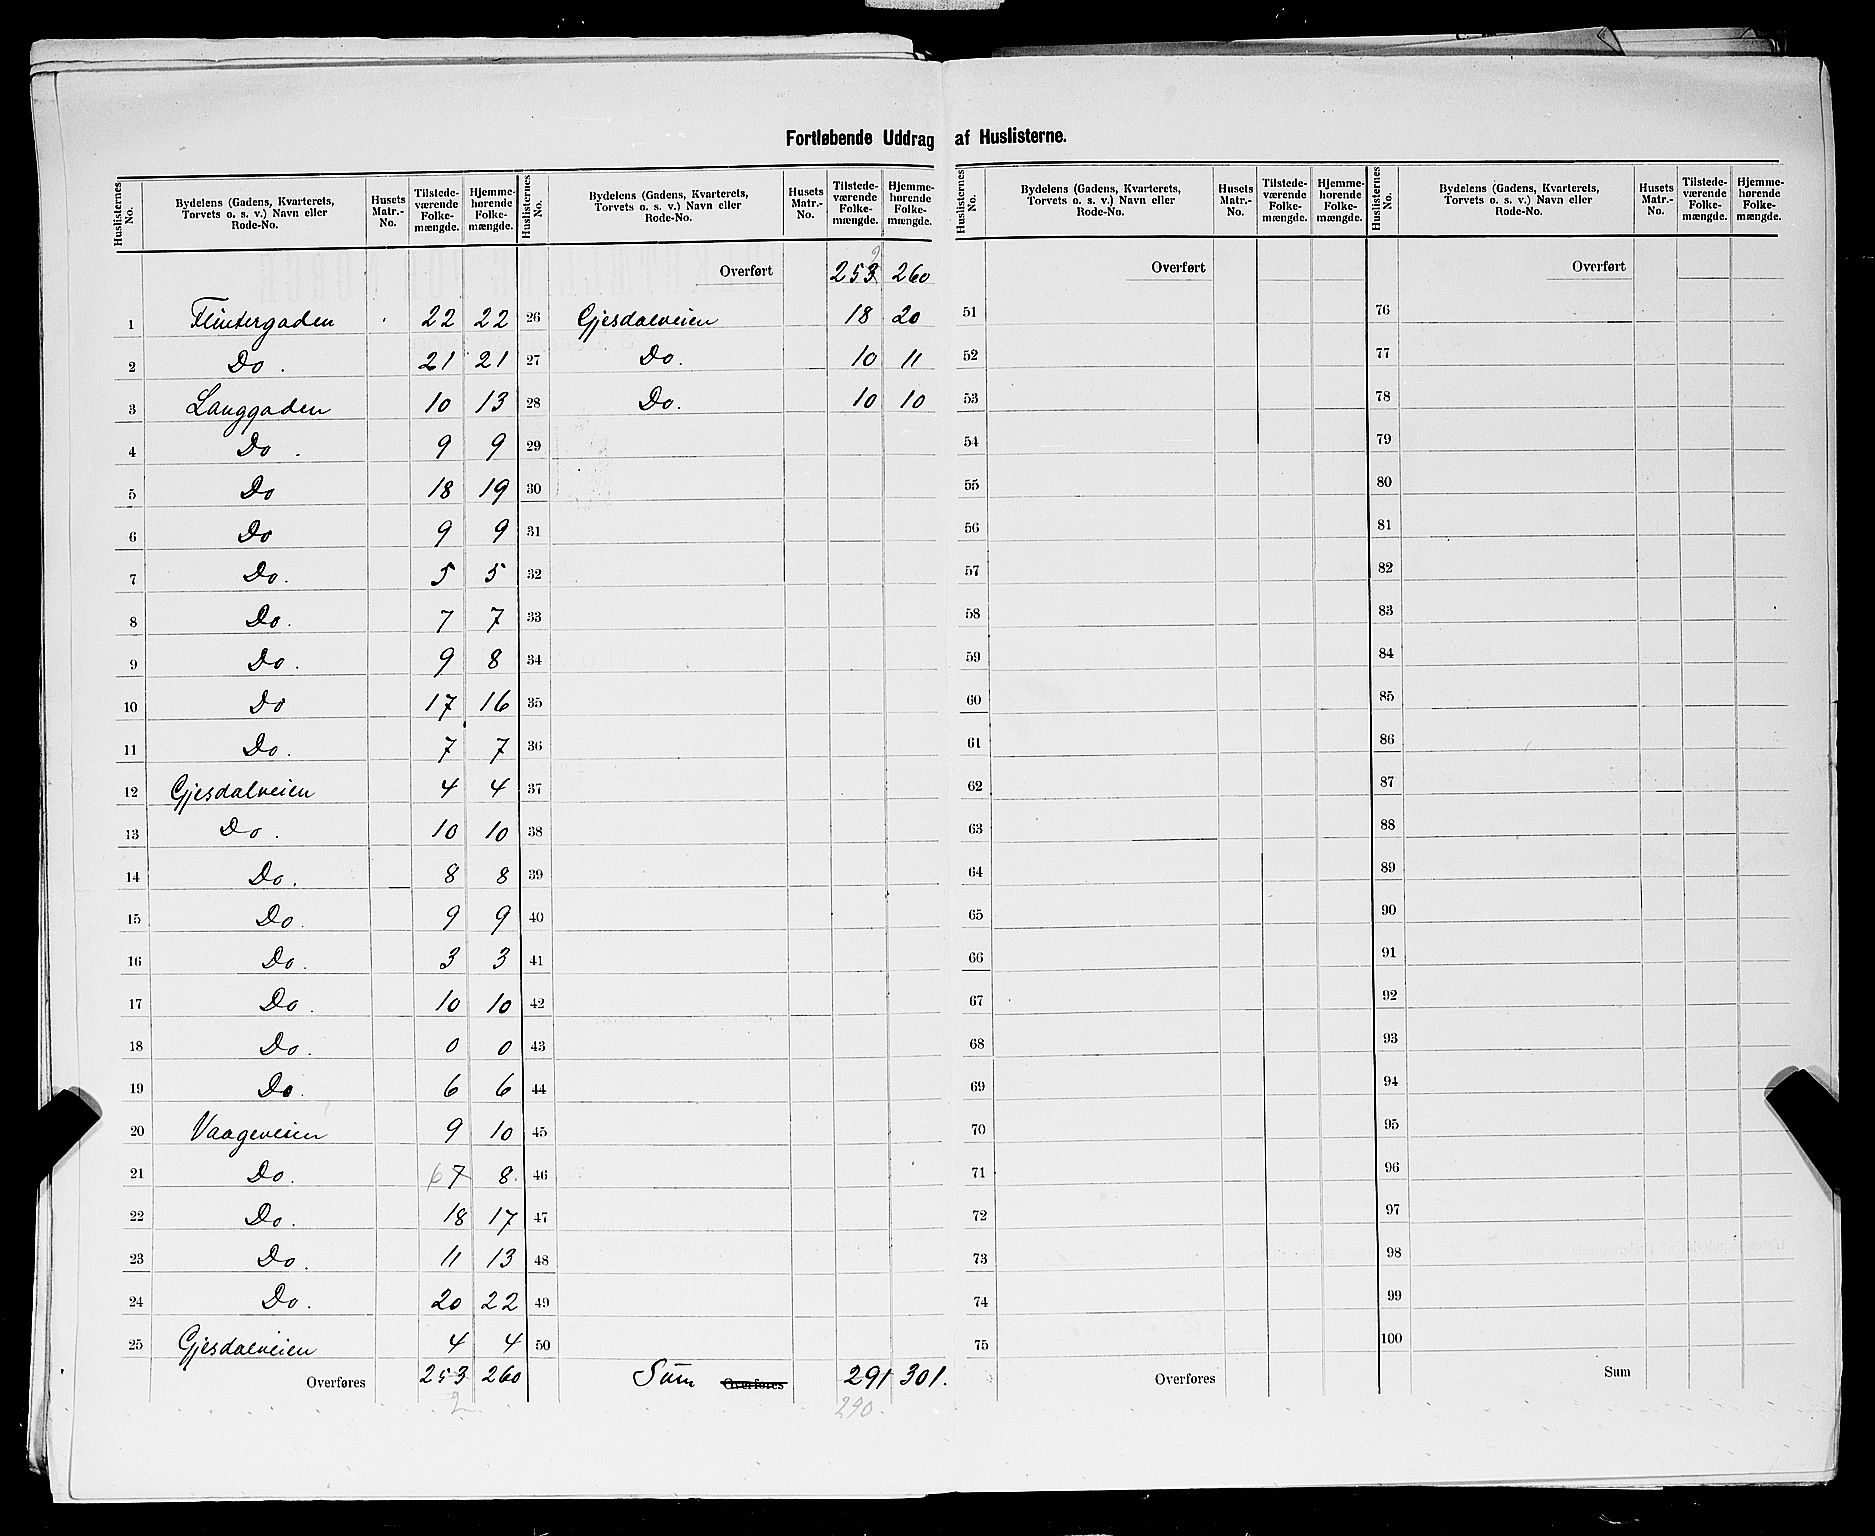 Fortløbende Uddrag af Huslisterne.
Huslisternes No. | Bydelens (Gadens, Kvarterets, Torvets o. s. v.) Navn eller Rode-No. | Husets Matr.-No. | Tilstedeværende Folkemængde. | Hjemmehørende Folkemængde.
1 Flintergaden 22 22
2 Do. 21 21
3 Langgaden 10 13
4 Do. 9 9
5 Do 18 19
6 Do 9 9
7 Do. 5 5
8 Do. 7 7
9 Do. 9 8
10 Do 17 16
11 Do. 7 7
12 Gjesdalveien 4 4
13 Do. 10 10
14 Do. 8 8
15 Do. 9 9
16 Do. 3 3
17 Do. 10 10
18 Do. 0 0
19 Do. 6 6
20 Vaageveien 9 10
21 Do. 6 7 8.
22 Do. 18 17
23 Do. 11 13
24 Do. 20 22
25 Gjesdalveien 4 4
Overføres 253 260
2
Huslisternes No. | Bydelens (Gadens, Kvarterets, Torvets o. s. v.) Navn eller Rode-No. | Husets Matr.-No. | Tilstedeværende Folkemængde. | Hjemmehørende Folkemængde.
2
Overført 253 260
26 Gjesdalveien 18 20
27 Do. 10 11
28 Do. 10 10
29
30
31
32
33
34
35
36
37
38
39
40
41
42
43
44
45
46
47
48
49
50
Sum Overføres 291 301.
290.
Huslisternes No. | Bydelens (Gadens, Kvarterets, Torvets o. s. v.) Navn eller Rode-No. | Husets Matr.-No. | Tilstedeværende Folkemængde. | Hjemmehørende Folkemængde.
Overført
51
52
53
54
55
56
57
58
59
60
61
62
63
64
65
66
67
68
69
70
71
72
73
74
75
Overføres
Huslisternes No. | Bydelens (Gadens, Kvarterets, Torvets o. s. v.) Navn eller Rode-No. | Husets Matr.-No. | Tilstedeværende Folkemængde. | Hjemmehørende Folkemængde.
Overført
76
77
78
79
80
81
82
83
84
85
86
87
88
89
90
91
92
93
94
95
96
97
98
99
100
Sum